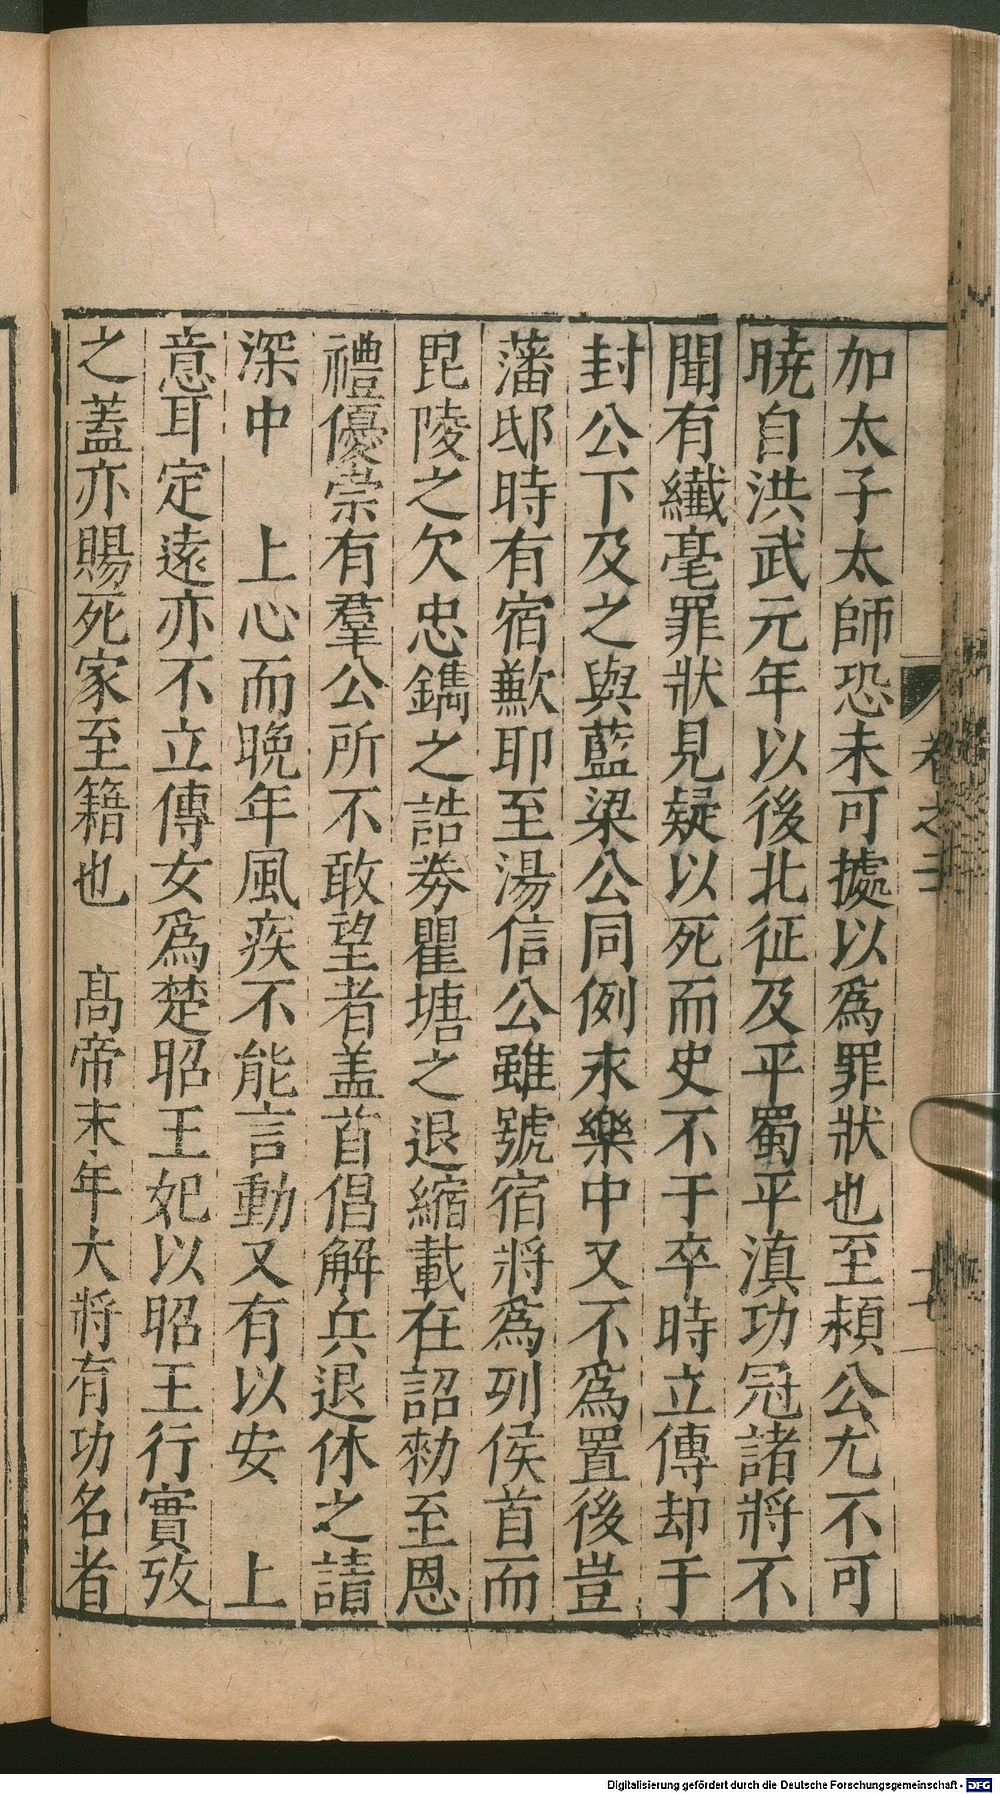 加太子太師恐未可據以爲罪狀也至潁公尤不可
曉自洪武元年以後北征及平蜀平滇功冠諸將不
聞有纖毫罪狀見疑以死而史不于卒時立傳却于
封公下及之與藍梁公同例永樂中又不爲置後豈
藩邸時有宿歉耶至湯信公雖號宿將爲列侯首而
毘陵之欠忠鐫之誥券瞿塘之退縮載在詔勑至恩
禮優崇有羣公所不敢望者盖首倡解兵退休之請
深中　上心而晚年風疾不能言動又有以安　上
意耳定遠亦不立傳女爲楚昭王妃以昭王行實攷
之蓋亦賜死家至籍也　髙帝末年大將有功名者
卷之三
十七
Digitalisierung gefördert durch die Deutsche Forschungsgemeinschaft - DFG